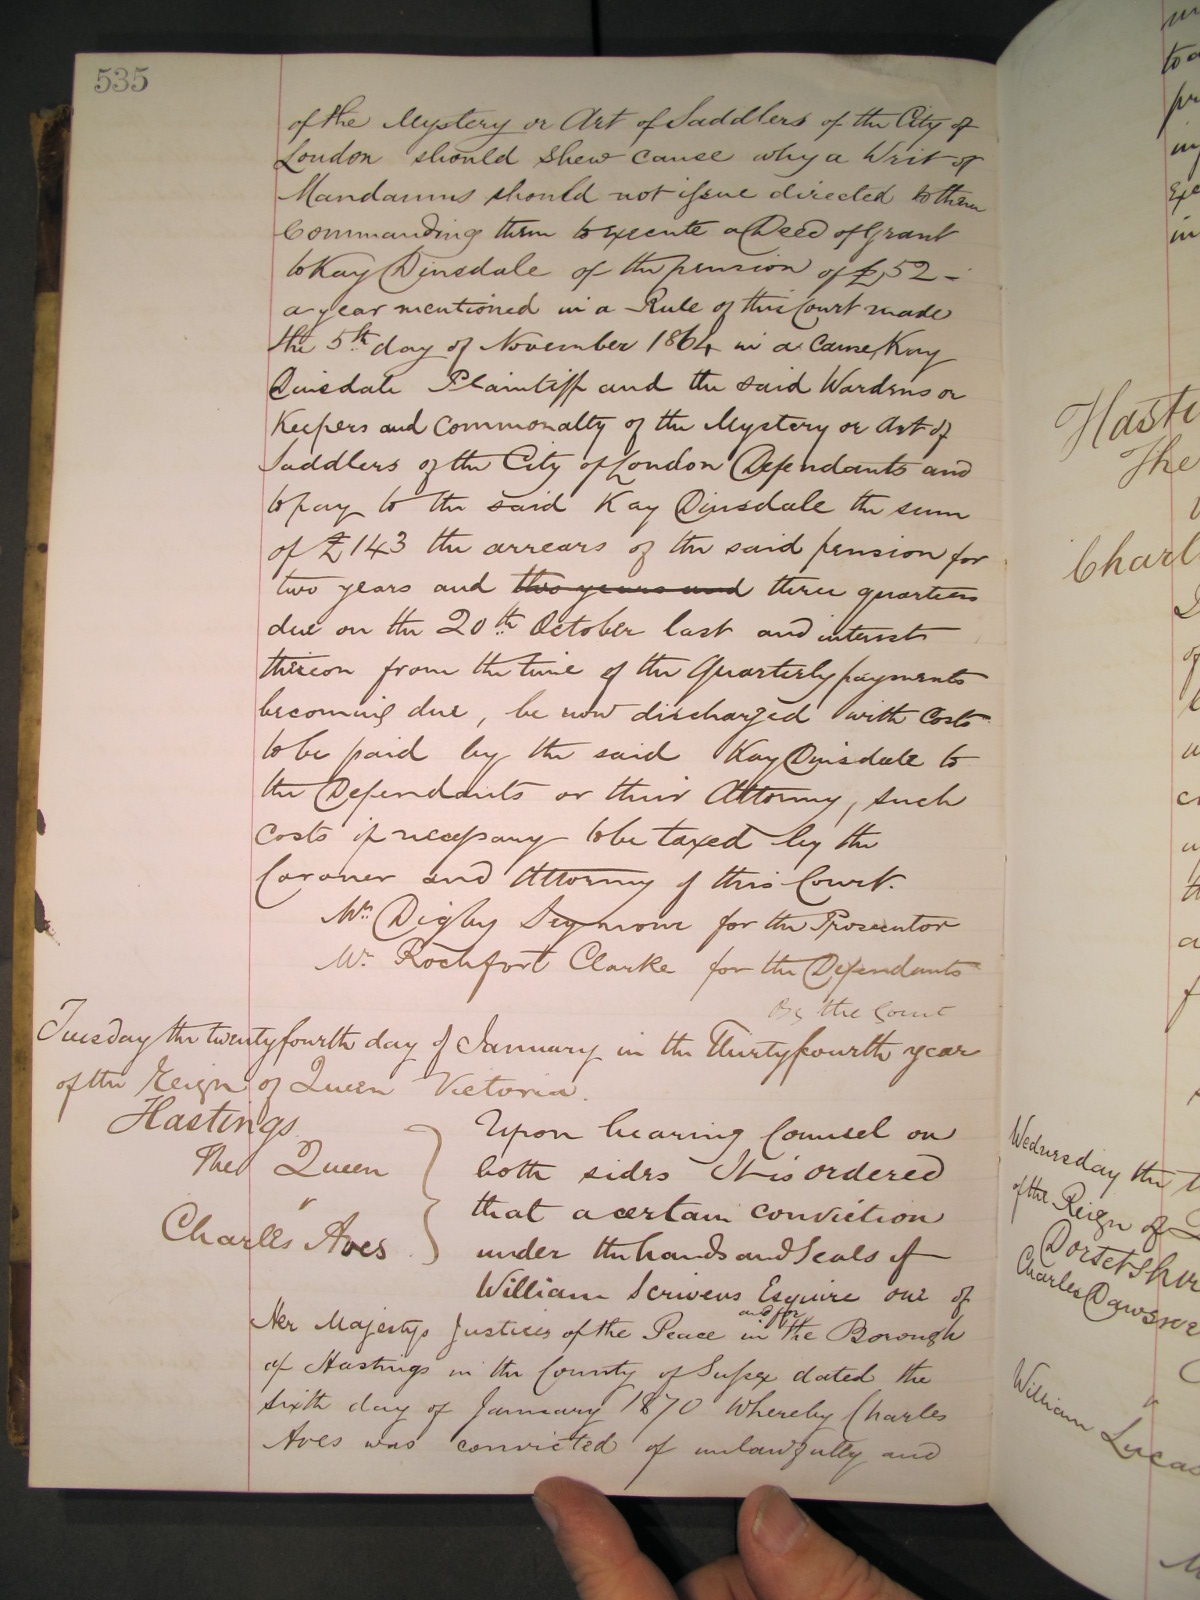 535
of the Mystery or Art of Saddlers of the City of
London should shew cause why a Writ of
Mandamus should not issue directed to them
Commanding them to execute a Deed of Grant
to Kay Dinsdale of the pension of £52 -
a year mentioned in a Rule of this Court made
the 5th day of November 1864 in a Cause Kay
Dinsdale Plaintiff and the said Wardens or
Keepers and Commonalty of the Mystery or Art of
Saddlers of the City of London Defendants and
to pay to the said Kay Dinsdale the sum
of £143 the arrears of the said pension for
two years and two years and three quarters
due on the 20th October last and interest
thereon from the time of the Quarterly payments
becoming due, be now discharged with Costs
to be paid by the said Kay Dinsdale to
the Defendants or their Attorney, such
costs if necessary to be taxed by the
Coroner and Attorney of this Court.
Mr. Digby Seymour for the Prosecutor
Mr. Rochfort Clarke for the Defendants
By the Court
Tuesday the twenty fourth day of January in the Thirtyfourth year
of the Reign of Queen Victoria.
Hastings
The Queen
v
Charles Aves
Upon hearing Counsel on
both sides It is ordered
that a certain conviction
under the hands and Seals of
William Scrivens Esquire one of
Her Majestys Justices of the Peace in and for the Borough
of Hastings in the County of Sussex dated the
sixth day of January 1870 Whereby Charles
Aves was convicted of unlawfully and
Hasti
The
Charl
Wednesday the t
of the Reign of
Dorsetshire
Charles Dawson
v
William Lucas